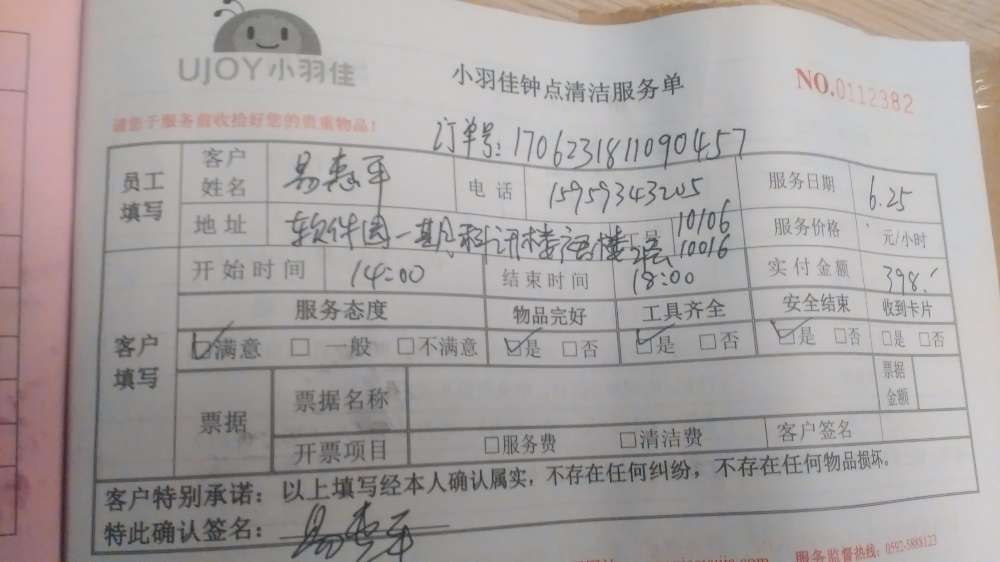 UJOY小羽佳
小羽佳钟点清洁服务单
NO.0112382
请您于服务前收拾好您的贵重物品！
订单号：1706231811090457
员工填写 客户姓名 易惠平 电话 15959343205 服务日期 6.25
地址 软件园一期科讯楼 2层 工号 10106 10016 服务价格 元/小时
开始时间 14:00 结束时间 18:00 实付金额 398.
客户填写 服务态度 物品完好 工具齐全 安全结束 收到卡片
☑满意 □一般 □不满意 ☑是 □否 ☑是 □否 ☑是 □否 □是 □否
票据 票据名称 票据金额
开票项目 □服务费 □清洁费 客户签名
客户特别承诺：以上填写经本人确认属实，不存在任何纠纷，不存在任何物品损坏。
特此确认签名：易惠平
服务监督热线：0592-5888123